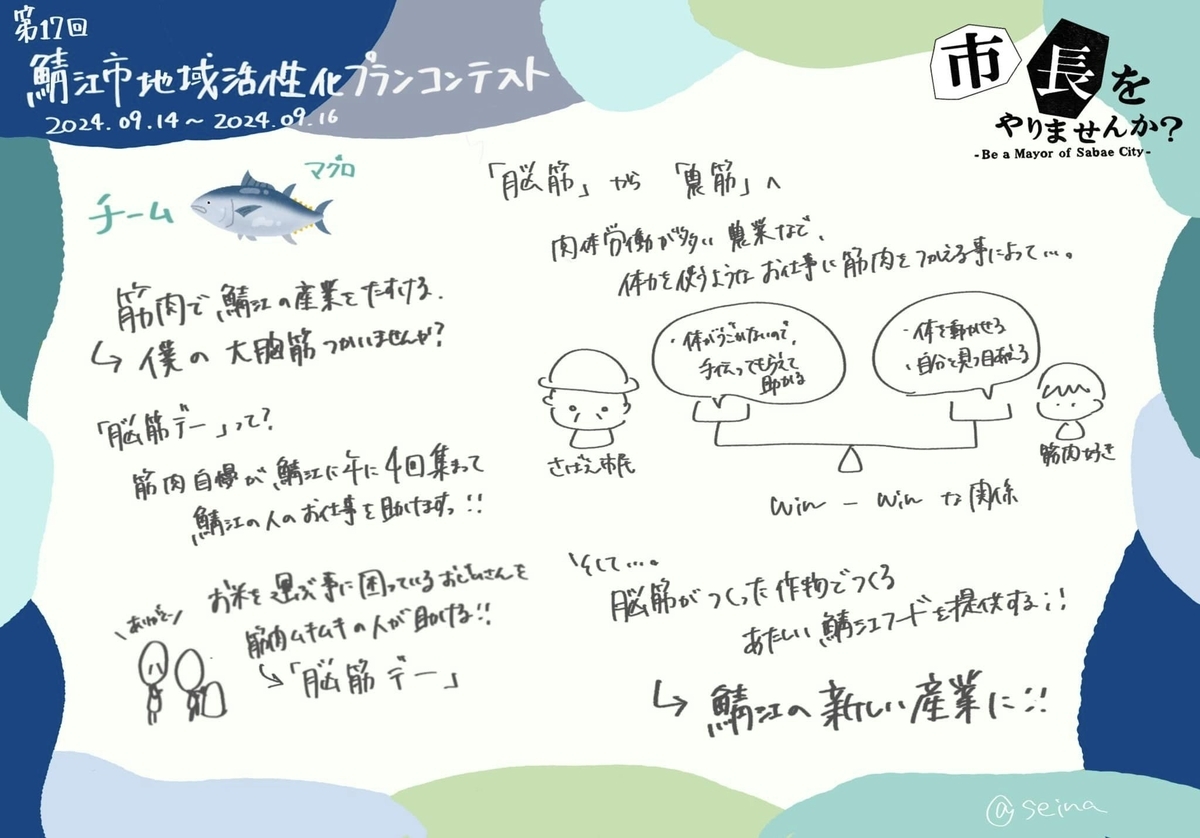 第17回
鯖江市地域活性化プランコンテスト
2024.09.14～2024.09.16
市長を
やりませんか?
-Be a Mayor of Sabae City-
チーム
マグロ
筋肉で鯖江の産業をたすける.
↳ 僕の大胸筋つかいませんか?
「脳筋デー」って?
筋肉自慢が鯖江に年に4回集まって
鯖江の人のお仕事を助けますっ!!
お米を運ぶ事に困っているおじいさんを
筋肉ムキムキの人が助ける!!
↳「脳筋デー」
「脳筋」から「農筋」へ
肉体労働が多い農業など、
体力を使うようなお仕事に筋肉をつかえる事によって…。
・体がうごかないので、
手伝ってもらえて
助かる
・体を動かせる
・自分を見つめ直せる
さばえ市民
筋肉好き
win – win な関係
そして…。
脳筋がつくった作物でつくる
あたしい鯖江フードを提供する!!
↳ 鯖江の新しい産業に!!
@seina